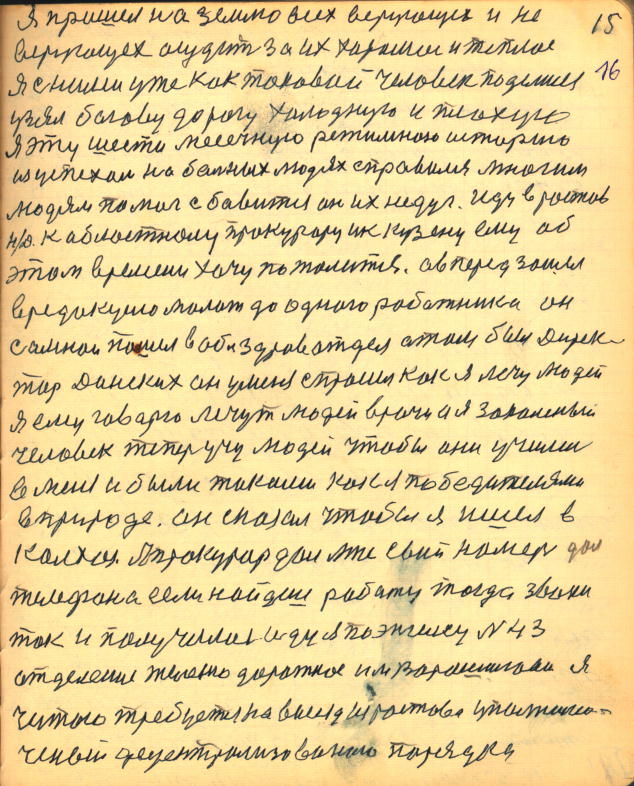 15
16
Я пришел на землю всех верующех и не
верующех осудит за их хорошое и теплое
я с ними уже как таковой человек поделился
узял богову дорогу холодную и плохую
я эту шести месечную режимною историю
из успехом на больных людях справился многим
людям помог сбавится он их недуг. иду в ростов
н/д. к областному прокурору ик кузену ему об
этом времени хочу пожалится. а вперед зашел
в редакцию молот до одного работника он
самной пошел в облздравотдел а там был Дирек-
тор Данских он у меня спросил как я лечу людей
я ему говарю лечут людей врачи а я закаленый
человек теперь учу людей чтобы они училися
в меня и были такими как я победителями
в природе. он сказал чтобы я ишел в
колхоз. А прокурор дал мне свой номер дал
телефона если найдеш работу тогда звони
так и получилось иду я по жилсу N 43
отделение железно дорожное им Ворошилова я
читаю требуется на выезд из ростова
ченый децентрализованого порядка